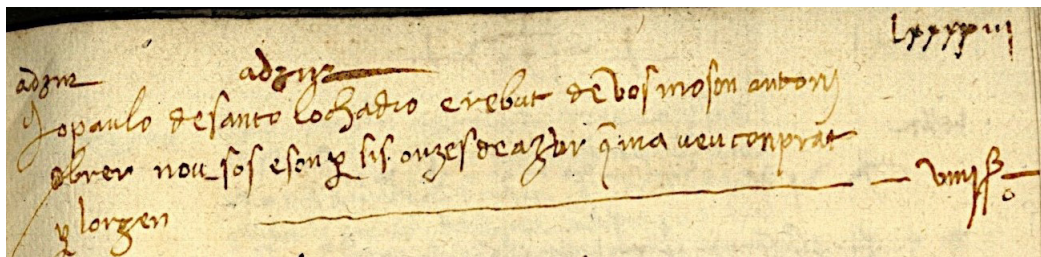 lxxxxvi
adzur adzur
Jo paulo de santo lochadio e rebut de vos moson antoni
obrer nou sos e son p sis onzes de azur q ma veu conprat
p lorgen viiij ss o